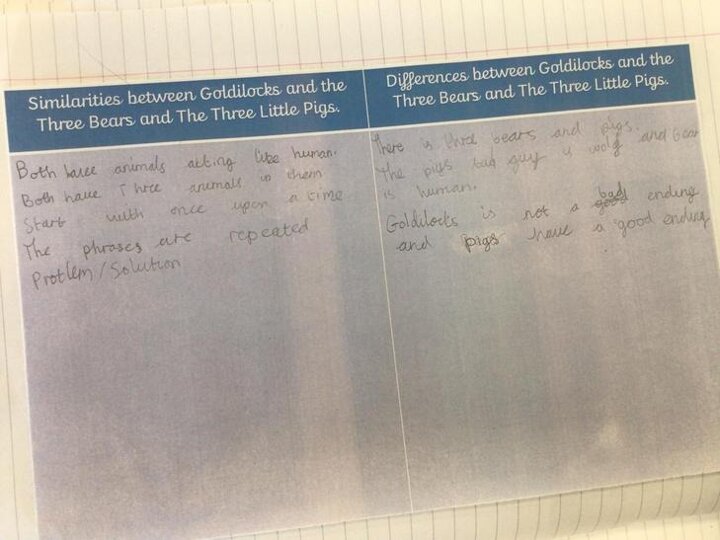 Similarities between Goldilocks and the
Three Bears and The Three Little Pigs.
Both have animals acting like human.
Both have Three animals in them
Start with once upon a time
The phrases are repeated
Problem/Solution
Differences between Goldilocks and the
Three Bears and The Three Little Pigs.
There is three bears and pigs.
The pigs bad guy is wolf and bear
is human.
Goldilocks is not a good bad ending
and pigs have a good ending